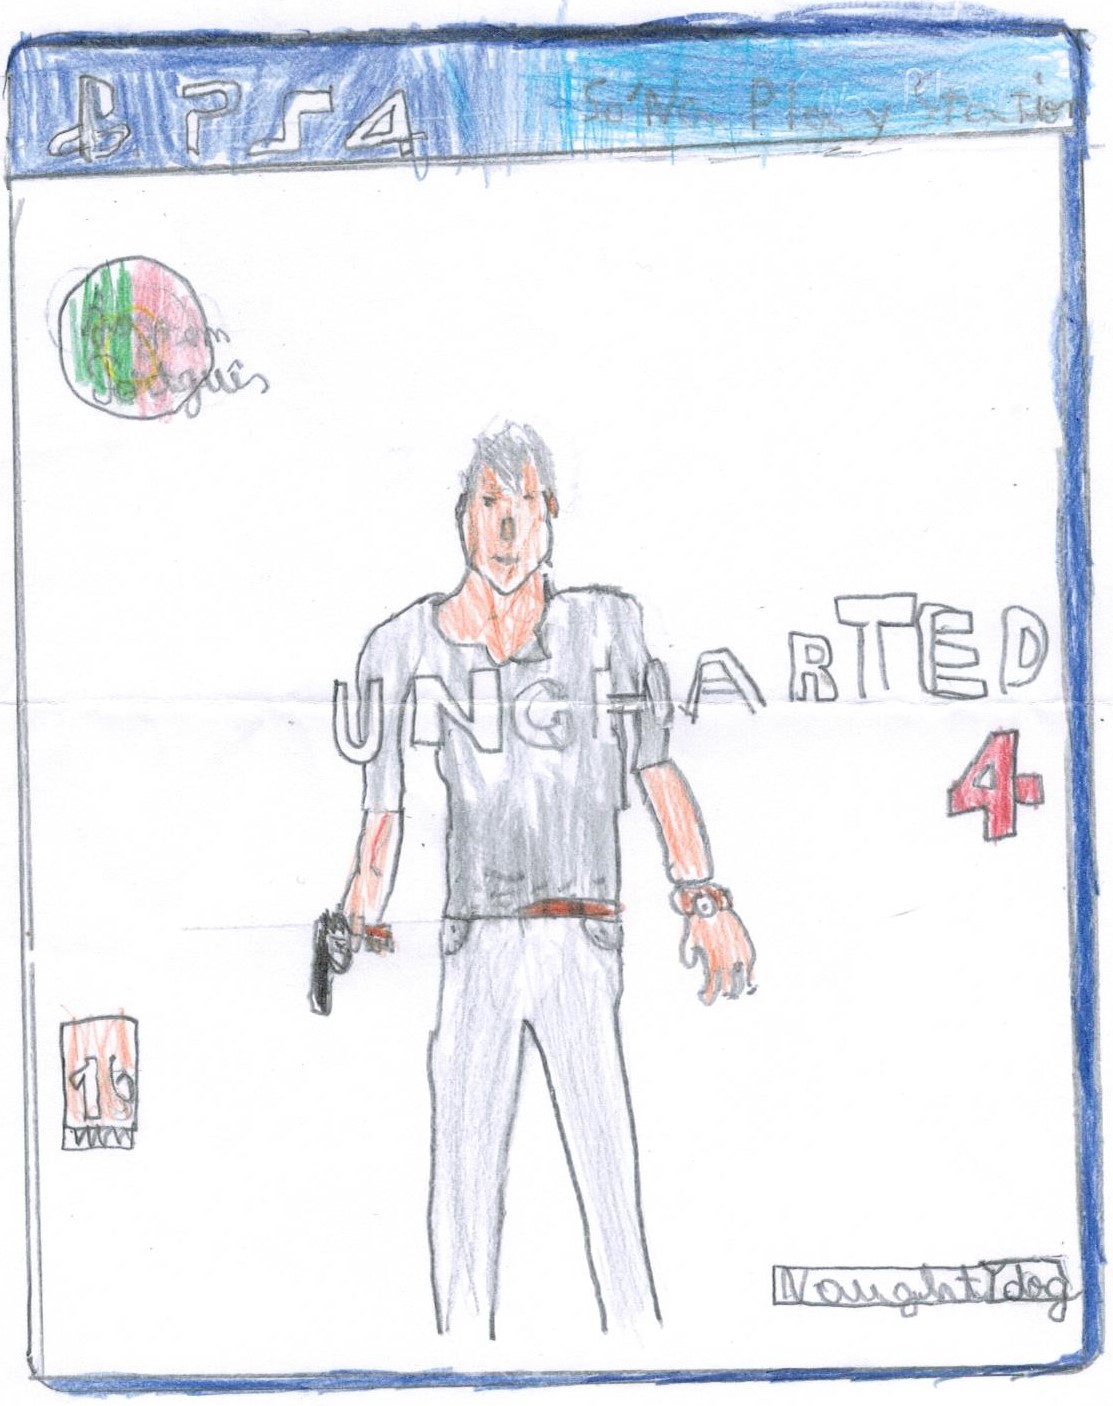 PS4
Só Na PlayStation
em
Português
UNCHARTED
4
16
Naughtydog